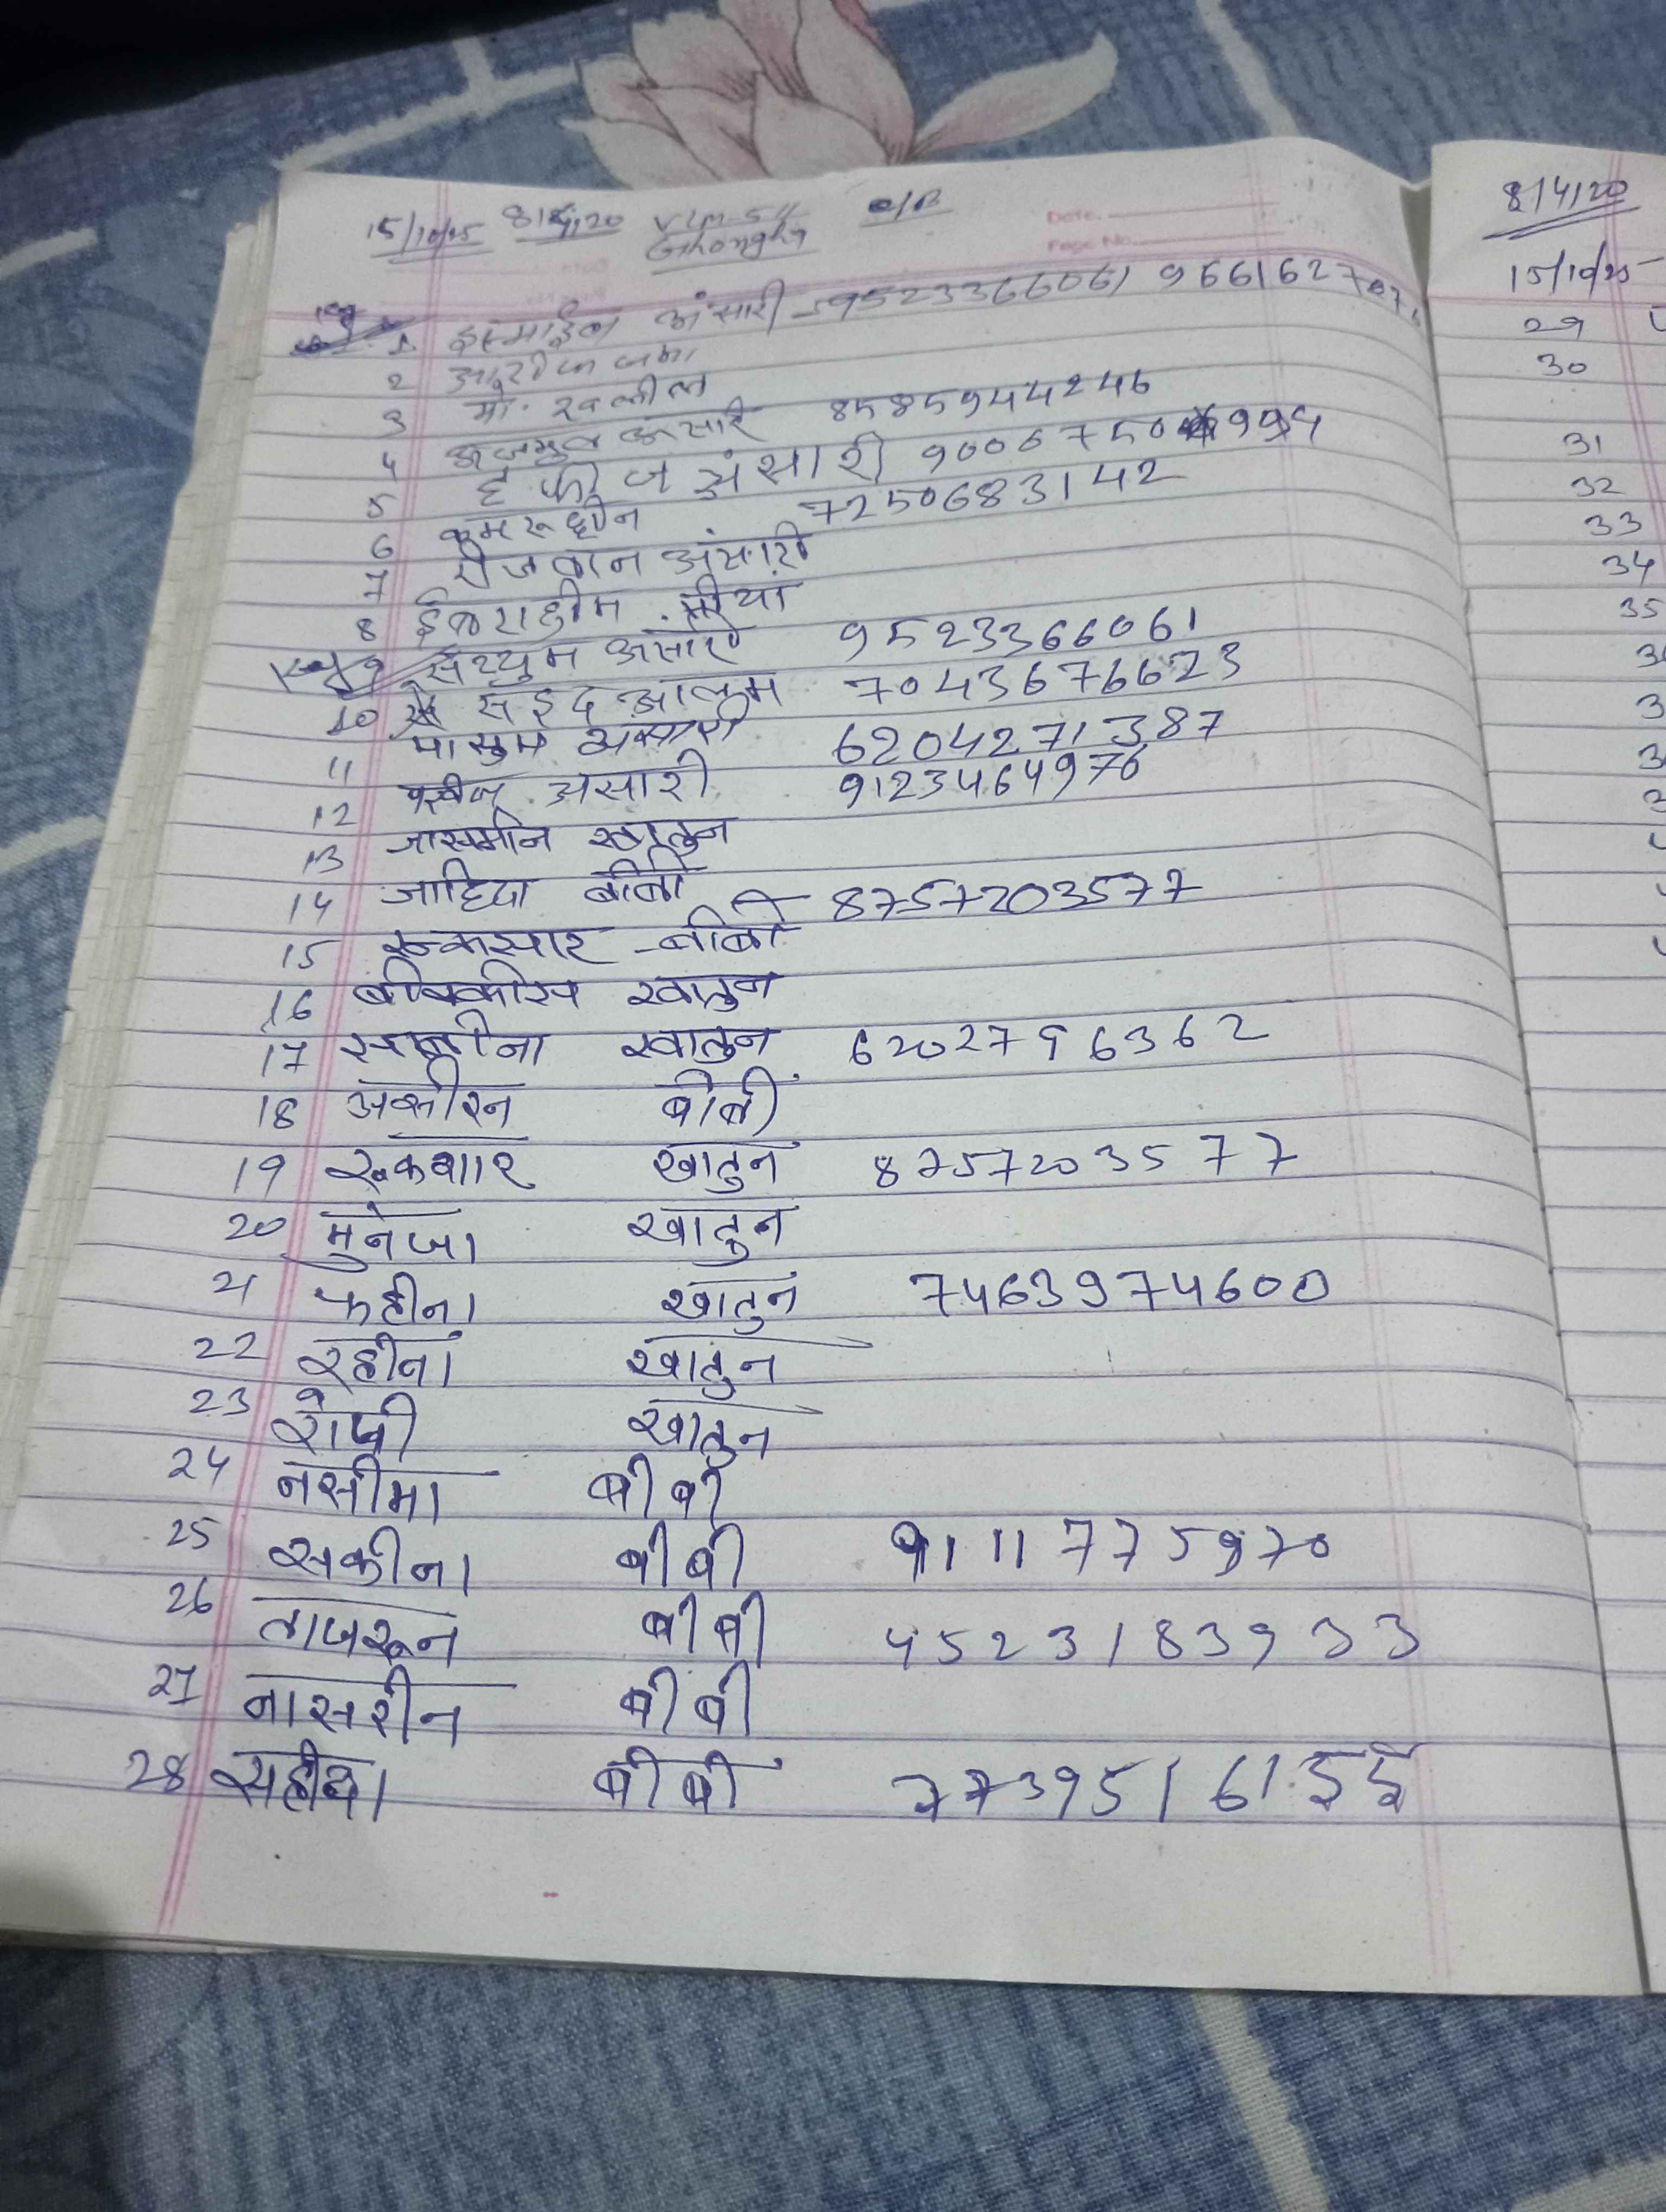 15/10/25 8/4/20 VLM-54 C/B
Ghongha
Date.
Page No.
1 इस्माईल अंसारी 9523366061 9661627
2
3 मो. खलील
4 अजमुल अंसारी 8585944246
5 हफीज अंसारी 9006750 994
6 कमरूद्दीन 7250683142
7 रीजवान अंसारी
8 ईबराहीम मीयां
9 सय्युम अंसारी 9523366061
10 सइद आलम 7043676623
11 मासुम अंसारी 6204271387
12 परवीज अंसारी 9123464976
13 जासमीन खातुन
14 जाहिदा बीबी
15 रूकसार बीबी 8757203577
16 बीलकीस खातुन
17 साबीना खातुन 6202796362
18 अकीरन बीबी
19 रूकशार खातुन 8757203577
20 मुनेजा खातुन
21 फहीना खातुन 7463974600
22 रहीना खातुन
23 रोजी खातुन
24 नसीमा बीबी
25 सकीना बीबी 9111775970
26 ताजरून बीबी 4523183933
27 नासरीन बीबी
28 सहीदा बीबी 7739516155
8/4/20
15/10/25
29
30
31
32
33
34
35